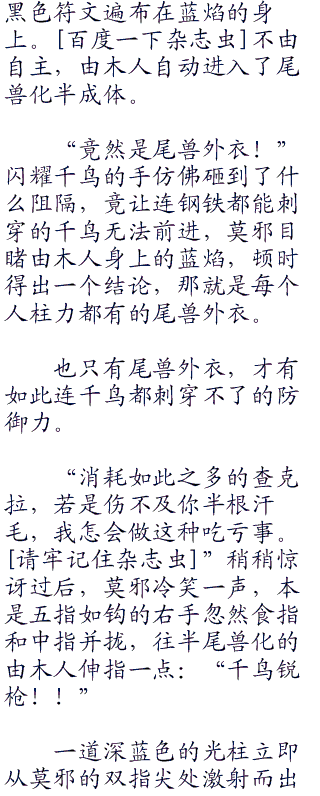 黑色符文遍布在蓝焰的身
上。[百度一下杂志虫]不由
自主，由木人自动进入了尾
兽化半成体。
“竟然是尾兽外衣！”
闪耀千鸟的手仿佛砸到了什
么阻隔，竟让连钢铁都能刺
穿的千鸟无法前进，莫邪目
睹由木人身上的蓝焰，顿时
得出一个结论，那就是每个
人柱力都有的尾兽外衣。
也只有尾兽外衣，才有
如此连千鸟都刺穿不了的防
御力。
“消耗如此之多的查克
拉，若是伤不及你半根汗
毛，我怎会做这种吃亏事。
[请牢记住杂志虫]”稍稍惊
讶过后，莫邪冷笑一声，本
是五指如钩的右手忽然食指
和中指并拢，往半尾兽化的
由木人伸指一点：“千鸟锐
枪！！”
一道深蓝色的光柱立即
从莫邪的双指尖处激射而出